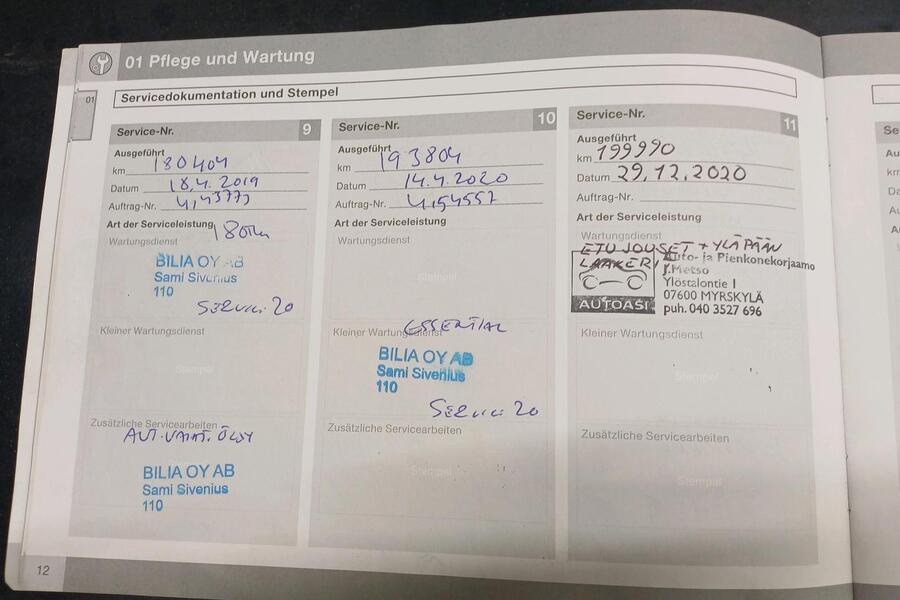 01 Pflege und Wartung
01
Servicedokumentation und Stempel
Service-Nr. 9
Ausgeführt
km 180404
Datum 18,4. 2019
Auftrag-Nr.
Art der Serviceleistung
Wartungsdienst
BILIA OY AB
Sami Sivenius
110
Kleiner Wartungsdienst
Stempel
Zusätzliche Servicearbeiten
AUT.VAIHT. ÖLJY
BILIA OY AB
Sami Sivenius
110
Service-Nr. 10
Ausgeführt
km 193804
Datum 14.4.2020
Auftrag-Nr. 4,54557
Art der Serviceleistung
Wartungsdienst
Stempel
ESSENTIAL
Kleiner Wartungsdienst
BILIA OY AB
Sami Sivenius
110
Zusätzliche Servicearbeiten
Stempel
Service-Nr. 11
Ausgeführt
km 199990
Datum 29,12,2020
Auftrag-Nr.
Art der Serviceleistung
Wartungsdienst
ETU JOUSET + YLÄPÄÄN
LAAKERI
Auto- ja Pienkonekorjaamo
J.Metso
Ylöstalontie 1
07600 MYRSKYLÄ
puh. 040 3527 696
AUTOASI
Kleiner Wartungsdienst
Stempel
Zusätzliche Servicearbeiten
Stempel
12